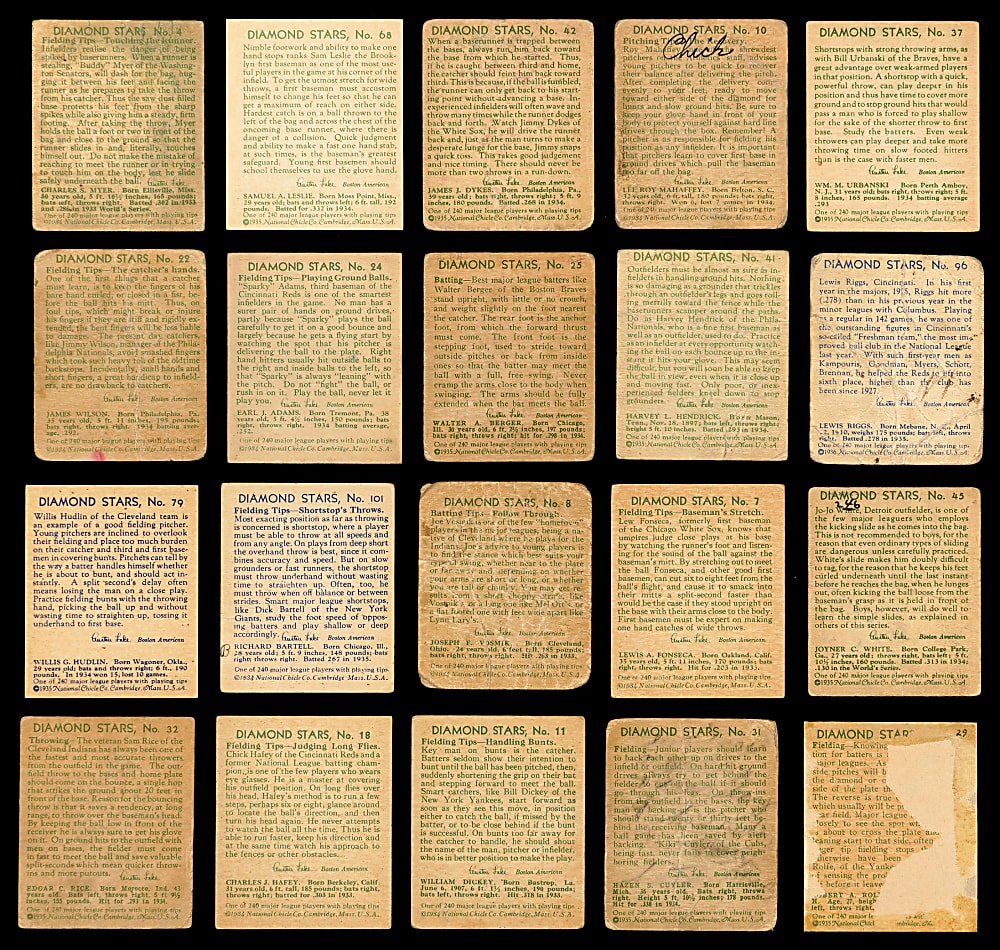 DIAMOND STARS, No. 4
Fielding Tips—Touching the Runner.
Infielders realise the danger of being
spiked by baserunners. When a runner is
stealing, "Buddy" Myer of the Washing-
ton Senators, will dash for the bag, hug-
ging it between his feet and facing the
runner as he prepares to take the throw
from his catcher. Thus the wary dust filled
base protects his feet from the sharp
spikes while also giving him a steady, firm
footing. After taking the throw, Myer
holds the ball a foot or two in front of the
bag and close to the ground so that the
runner slides in and, literally, touches
himself out. Do not make the mistake of
reaching to meet the runner or in trying
to touch him on the body, lest he slide
safely underneath the ball.
Austen Lake. Boston American
CHARLES S. MYER. Born Ellisville, Miss.
30 years old, 5 ft. 10½ inches, 165 pounds,
bats left, throws right. Batted .302 in 1933
and .286 in 1933 World's Series.
One of 240 major league players with playing tips
DIAMOND STARS, No. 68
Nimble footwork and ability to make one
hand stops ranks Sam Leslie the Brook-
lyn first baseman as one of the most use-
ful players in the game at his corner of the
infield. To get the utmost stretch for wide
throws, a first baseman must accustom
himself to change his feet so that he can
get a maximum of reach on either side.
Hardest catch is on a ball thrown to the
left of the bag and across the chest of the
oncoming base runner, where there is
danger of a collision. Quick judgment
and ability to make a fast one hand stab,
at such times, is the baseman's greatest
safeguard. Young first basemen should
practice this often.
Austen Lake. Boston American
SAMUEL A. LESLIE. Born Moss Point, La.,
29 years old; bats and throws left; 6 ft. tall, 192
pounds. Batted for .332 in 1934.
One of 240 major league players with playing tips
©1935 National Chicle Co. Cambridge, Mass. U.S.A.
DIAMOND STARS, No. 42
When a baserunner is trapped between
the bases, always run him back toward
the base from which he started. Thus,
if he is caught between third and home,
the catcher should feint him back toward
third. This is because, if the ball is fumbled,
the runner can only get back to his start-
ing point without advancing a base. In-
experienced infielders will often wave and
throw many times while the runner dodges
back and forth. Watch Jimmy Dykes of
the White Sox, he will drive the runner
back and, just as the man turns to make a
desperate lunge for the base, Jimmy snaps
a quick toss. This takes good judgement
and nice timing. There should never be
more than two throws in a rest-down.
Austen Lake. Boston American
JAMES J. DYKES. Born Philadelphia, Pa.,
39 years old; bats right, throws right; 5 ft. 9
inches, 180 pounds. Batted .268 in 1934.
One of 240 major league players with playing tips
©1935 National Chicle Co. Cambridge, Mass. U.S.A.
DIAMOND STARS, No. 10
Chick
Pitching
Roy Mahaffey
pitchers
staff, advises
young pitchers to
recover
their balance after delivering the pitch.
After completing the delivery
conveniently to your feet, ready to move
toward either side of the diamond for
bunts and slow ground hits. Be sure to
keep your glove hand in front of your
body to protect yourself against hard line
drives through the box. Remember! A
pitcher is as responsible for fielding his
position as any infielder. It is important
that pitchers learn to cover first base in
ground drives which pull the baseman
too far off the bag.
Austen Lake. Boston American
LEE ROY MAHAFFEY. Born Belton, S. C.
One of 240 major league players with playing tips
©1935 National Chicle Co. Cambridge, Mass. U.S.A.
DIAMOND STARS, No. 37
Shortstops with strong throwing arms, as
with Bill Urbanski of the Braves, have a
great advantage over weak-armed players
in that position. A shortstop with a quick,
powerful throw, can play deeper in his
position and thus have time to cover more
ground and to stop ground hits that would
pass a man who is forced to play shallow
for the sake of the shorter throw to first
base. Study the batters. Even weak
throwers can play deeper and take more
throwing time on slow footed hitters
than is the case with faster men.
Austen Lake. Boston American
WM. M. URBANSKI Born Perth Amboy,
N. J., 31 years old; bats right, throws right; 5 ft.
8 inches, 165 pounds. 1934 batting average
.293
One of 240 major league players with playing tips
©1935 National Chicle Co. Cambridge, Mass. U.S.A.
DIAMOND STARS, No. 22
Fielding Tips—The catcher's hands.
One of the first things that a catcher
must learn, is to keep the fingers of his
bare hand curled, or closed in a fist, be-
fore the ball hits his mitt. Thus, on
foul tips, which might break or injure
his fingers if they are stiff and rigidly ex-
tended, the bent fingers will be less liable
to damage. The present day catchers,
like Jimmy Wilson, manager of the Phila-
delphia Nationals, avoid smashed fingers
which took such heavy toll of the oldtime
backstops. Incidentally, small hands and
short fingers, a great handicap to infield-
ers, are no drawback to catchers.
JAMES WILSON. Born Philadelphia, Pa.
35 years old, 5 ft. 11 inches, 195 pounds,
bats right, throws right. 1934 batting
average .292.
One of 240 major league players with playing tips
©1934 National Chicle Co. Cambridge, Mass. U.S.A.
DIAMOND STARS, No. 24
Fielding Tips—Playing Ground Balls.
"Sparky" Adams, third baseman of the
Cincinnati Reds is one of the smartest
infielders in the game. No man has a
surer pair of hands on ground drives,
partly because "Sparky" plays the balls
carefully to get it on a good bounce and
largely because he gets a flying start by
watching the spot that his pitcher is
delivering the ball to the plate. Right
hand hitters usually hit outside balls to
the right and inside balls to the left, so
that "Sparky" is always "leaning" with
the pitch. Do not "fight" the ball, or
rush in on it. Play the ball, never let it
play you.
Austen Lake. Boston American
EARL J. ADAMS. Born Tremont, Pa. 38
years old, 5 ft. 4½, 150 pounds; bats right,
throws right. 1934 batting average .252.
One of 240 major league players with playing tips
©1934 National Chicle Co. Cambridge, Mass. U.S.A.
DIAMOND STARS, No. 25
Batting—Best major league batters like
Walter Berger of the Boston Braves
stand upright, with little or no crouch,
and weight slightly on the foot nearest
the catcher. The rear foot is the anchor
foot, from which the forward thrust
must come. The front foot is the
stepping foot, used to stride toward
outside pitches or back from inside
ones so that the batter may meet the
ball with a full, free-swing. Never
cramp the arms close to the body when
swinging. The arms should be fully
extended when the bat meets the ball.
Austen Lake. Boston American
WALTER A. BERGER. Born Chicago,
Ill. 30 years old, 6 ft. 1½ inches, 197 pounds;
bats right, throws right; hit for .298 in 1934.
One of 240 major league players with playing tips
©1935 National Chicle Co. Cambridge, Mass. U.S.A.
DIAMOND STARS, No. 41
Outfielders must be almost as sure as in-
fielders in handling ground hits. Nothing
is so damaging as a grounder that trickles
through an outfielder's legs and goes roll-
ing merrily toward the fence while the
baserunners scamper around the paths.
Do as Harvey Hendrick of the Phila.
Nationals, who is a fine first baseman as
well as outfielder, used to do. Practice
as an infielder at every opportunity watch-
ing the ball on each bounce up to the in-
stant it hits your glove. This may seem
difficult, but you will soon be able to keep
the ball in view, even when it is close up
and moving fast. Only poor, or inex-
perienced fielders kneel down to stop
grounders.
Austen Lake. Boston American
HARVEY L. HENDRICK. Born Mason
Tenn., Nov. 28, 1897; bats left, throws
right; height 5 ft. 10 inches. Hit .293 in 1934.
One of 240 major league players with playing tips
©1935 National Chicle Co. Cambridge, Mass. U.S.A.
DIAMOND STARS, No. 96
Lewis Riggs, Cincinnati. In his first
year in the majors, 1935, Riggs hit more
(.278) than in his previous year in the
minor leagues with Columbus. Playing
as a regular in 142 games, he was one of
the outstanding figures in Cincinnati's
so-called "Freshman team," the most im-
proved ball club in the National League
last year. With such first-year men as
Kampouris, Goodman, Myers, Schott,
Brennan, he helped the Reds to lift into
sixth place, higher than the club has
been since 1927.
Austen Lake.
LEWIS RIGGS. Born Mebane, N. C., April
22, 1910, weighs 175 pounds; bats left, throws
right. Batted .278 in 1935.
One of 240 major league players with playing tips
©1936 National Chicle Co. Cambridge, Mass. U.S.A.
DIAMOND STARS, No. 79
Willis Hudlin of the Cleveland team is
an example of a good fielding pitcher.
Young pitchers are inclined to overlook
their fielding and place too much burden
on their catcher and third and first base-
men in covering bunts. Pitchers can tell by
the way a batter handles himself whether
he is about to bunt, and should act in-
stantly. A split second's delay often
means losing the man on a close play.
Practice fielding bunts with the throwing
hand, picking the ball up and without
wasting time to straighten up, tossing it
underhand to first base.
Austen Lake. Boston American
WILLIS G. HUDLIN. Born Wagoner, Okla.,
29 years old; bats and throws right, 6 ft., 190
pounds. In 1934 won 15, lost 10 games.
One of 240 major league players with playing tips
©1935 National Chicle Co. Cambridge, Mass. U.S.A.
DIAMOND STARS, No. 101
Fielding Tips—Shortstop's Throws.
Most exacting position as far as throwing
is concerned is shortstop, where a player
must be able to throw at all speeds and
from any angle. On plays from deep short
the overhand throw is best, since it com-
bines accuracy and speed. But on slow
grounders or fast runners, the shortstop
must throw underhand without wasting
time to straighten. Often, too, he
must throw when off balance or between
strides. Smart major league shortstops,
like Dick Bartell of the New York
Giants, study the foot speed of oppos-
ing batters and play shallow or deep
accordingly.
Austen Lake. Boston American
RICHARD BARTELL. Born Chicago, Ill.,
28 years old; 5 ft. 9 inches, 148 pounds; bats
right; throws right. Batted .267 in 1935.
One of 240 major league players with playing tips
©1934 National Chicle Co. Cambridge, Mass. U.S.A.
DIAMOND STARS, No. 8
Batting Tips—Follow Through.
Joe Vosmik is one of the few "hometown"
players in the major leagues, being a na-
tive of Cleveland where he plays for the
Indians. Joe's advice to young players is
to find the stance which best suits your
your arms are short or long, or whether
you are tall or chunky. You may get re-
a flat footed one with feet wide apart like
Lynn Lary's.
JOSEPH F. VOSMIK. Born Cleveland,
Ohio. 24 years old, 6 feet tall, 185 pounds;
bats right, throws right. Hit for .263 in 1933.
One of 240 major league players with playing tips
©1934 National Chicle Co. Cambridge, Mass. U.S.A.
DIAMOND STARS, No. 7
Fielding Tips—Baseman's Stretch.
Lew Fonseca, formerly first baseman
of the Chicago White Sox, knows that
umpires judge close plays at his base
by watching the runner's foot and listen-
ing for the sound of the ball against
the baseman's mitt. By stretching out to meet
the ball Fonseca, and other good first
basemen, can cut six to eight feet from the
ball's flight, and cause it to smack into
their mitts a split-second faster than
would be the case if they stood upright on
the base with their arms close to the body.
First basemen must be expert on making
one hand catches of wide throws.
Austen Lake. Boston American
LEWIS A. FONSECA. Born Oakland, Calif.
35 years old, 5 ft. 11 inches, 170 pounds; bats
right, throws right. Hit for .203 in 1933.
One of 240 major league players with playing tips
©1934 National Chicle Co. Cambridge, Mass. U.S.A.
DIAMOND STARS, No. 45
Jo-Jo White, Detroit outfielder, is one of
the few major leaguers who employs
the kicking slide as he comes into the bag.
This is not recommended to boys, for the
reason that even ordinary types of sliding
are dangerous unless carefully practiced.
White's slide makes him doubly difficult
to tag, for the reason that he keeps his feet
curled underneath until the last instant
before he reaches the bag, when he lunges
out, often kicking the ball loose from the
baseman's grasp as it is held in front of
the bag. Boys, however, will do well to
learn the simple slides, as explained in
others of this series.
Austen Lake. Boston American
JOYNER C. WHITE. Born College Park,
Ga., 27 years old; throws right, bats left; 5 ft.
10½ inches, 160 pounds. Batted .313 in 1934;
.130 in the World's Series
One of 240 major league players with playing tips
©1935 National Chicle Co. Cambridge, Mass. U.S.A.
DIAMOND STARS, No. 32
Throwing—The veteran Sam Rice of the
Cleveland Indians has always been one of
the fastest and most accurate throwers
from the outfield in the game. The out-
field throw to the bases and home plate
should come on the bounce, a single hop
that strikes the ground about 20 feet in
front of the base. Reason for the bouncing
throw is that it saves a tendency, at long
range, to throw over the baseman's head.
By keeping the ball low in front of the
receiver he is always sure to get his glove
on it. On ground hits to the outfield with
men on bases, the fielder must come
in fast to meet the ball and save valuable
split-seconds which mean quicker throw-
ins and more putouts.
Austen Lake.
EDGAR C. RICE. Born Morocco, Ind. 43
years old. Bats left, throws right, 5 ft. 9½
inches, 155 pounds. Hit for .293 in 1934.
One of 240 major league players with playing tips
DIAMOND STARS, No. 18
Fielding Tips—Judging Long Flies.
Chick Hafey of the Cincinnati Reds and a
former National League batting cham-
pion, is one of the few players who wears
eye glasses. He is a master at covering
his outfield position. On long flies over
his head, Hafey's method is to run a few
steps, perhaps six or eight, glance around
to locate the ball's direction, and then
turn his head again. He never attempts
to watch the ball all the time. Thus he is
able to run faster, keep his direction and
at the same time watch his approach to
the fences or other obstacles.
Austen Lake.
CHARLES J. HAFEY. Born Berkeley, Calif.
31 years old, 6 ft. tall, 185 pounds; bats right,
throws right; batted .303 in 1933.
One of 240 major league players with playing tips
©1934 National Chicle Co. Cambridge, Mass. U.S.A.
DIAMOND STARS, No. 11
Fielding Tips—Handling Bunts.
Key man on bunts is the catcher.
Batters seldom show their intention to
bunt until the ball has been pitched, then,
suddenly shortening the grip on their bat
and stepping forward to meet the ball.
Smart catchers, like Bill Dickey of the
New York Yankees, start forward as
soon as they see this move, in position
either to catch the ball, if missed by the
batter, or to be close behind if the bunt
is successful. On bunts too far away for
the catcher to handle, he should shout
the name of the man, pitcher or infielder,
who is in better position to make the play.
WILLIAM DICKEY. Born Bastrop, La.
June 6, 1907, 6 ft. 1½ inches, 190 pounds;
bats left, throws right. Hit .318 in 1933.
One of 240 major league players with playing tips
©1934 National Chicle Co. Cambridge, Mass. U.S.A.
DIAMOND STARS, No. 31
Fielding—Junior players should learn
to back each other up on drives to the
infield or outfield. On hard hit ground
drives always try to get behind the
fielder to
go through his legs. On
from the outfield to the bases, the key
man for backing is the pitcher who
should stand twenty or thirty feet be-
hind the receiving baseman. Many a
ball game has been saved by alert
backing. Kiki Cuyler, of the Cubs,
being fast, never fails to cover neigh-
boring fielders.
HAZEN S. CUYLER, Born Harrisville,
Mich. 35 years old. Bats right, throws
right. Height 5 ft. 10½ inches; 178 pounds
Hit for .338 in 1934.
One of 240 major league players with playing tips
DIAMOND STAR
29
Fielding—Knowing
tion for batters is
major leagues. As
side pitches will b
the diamond or o
side of the plate t
The reverse is true
which usually will be pu
far field. Major league
closely to see the spot w
about to cross the plate and
leaning start to that side, often